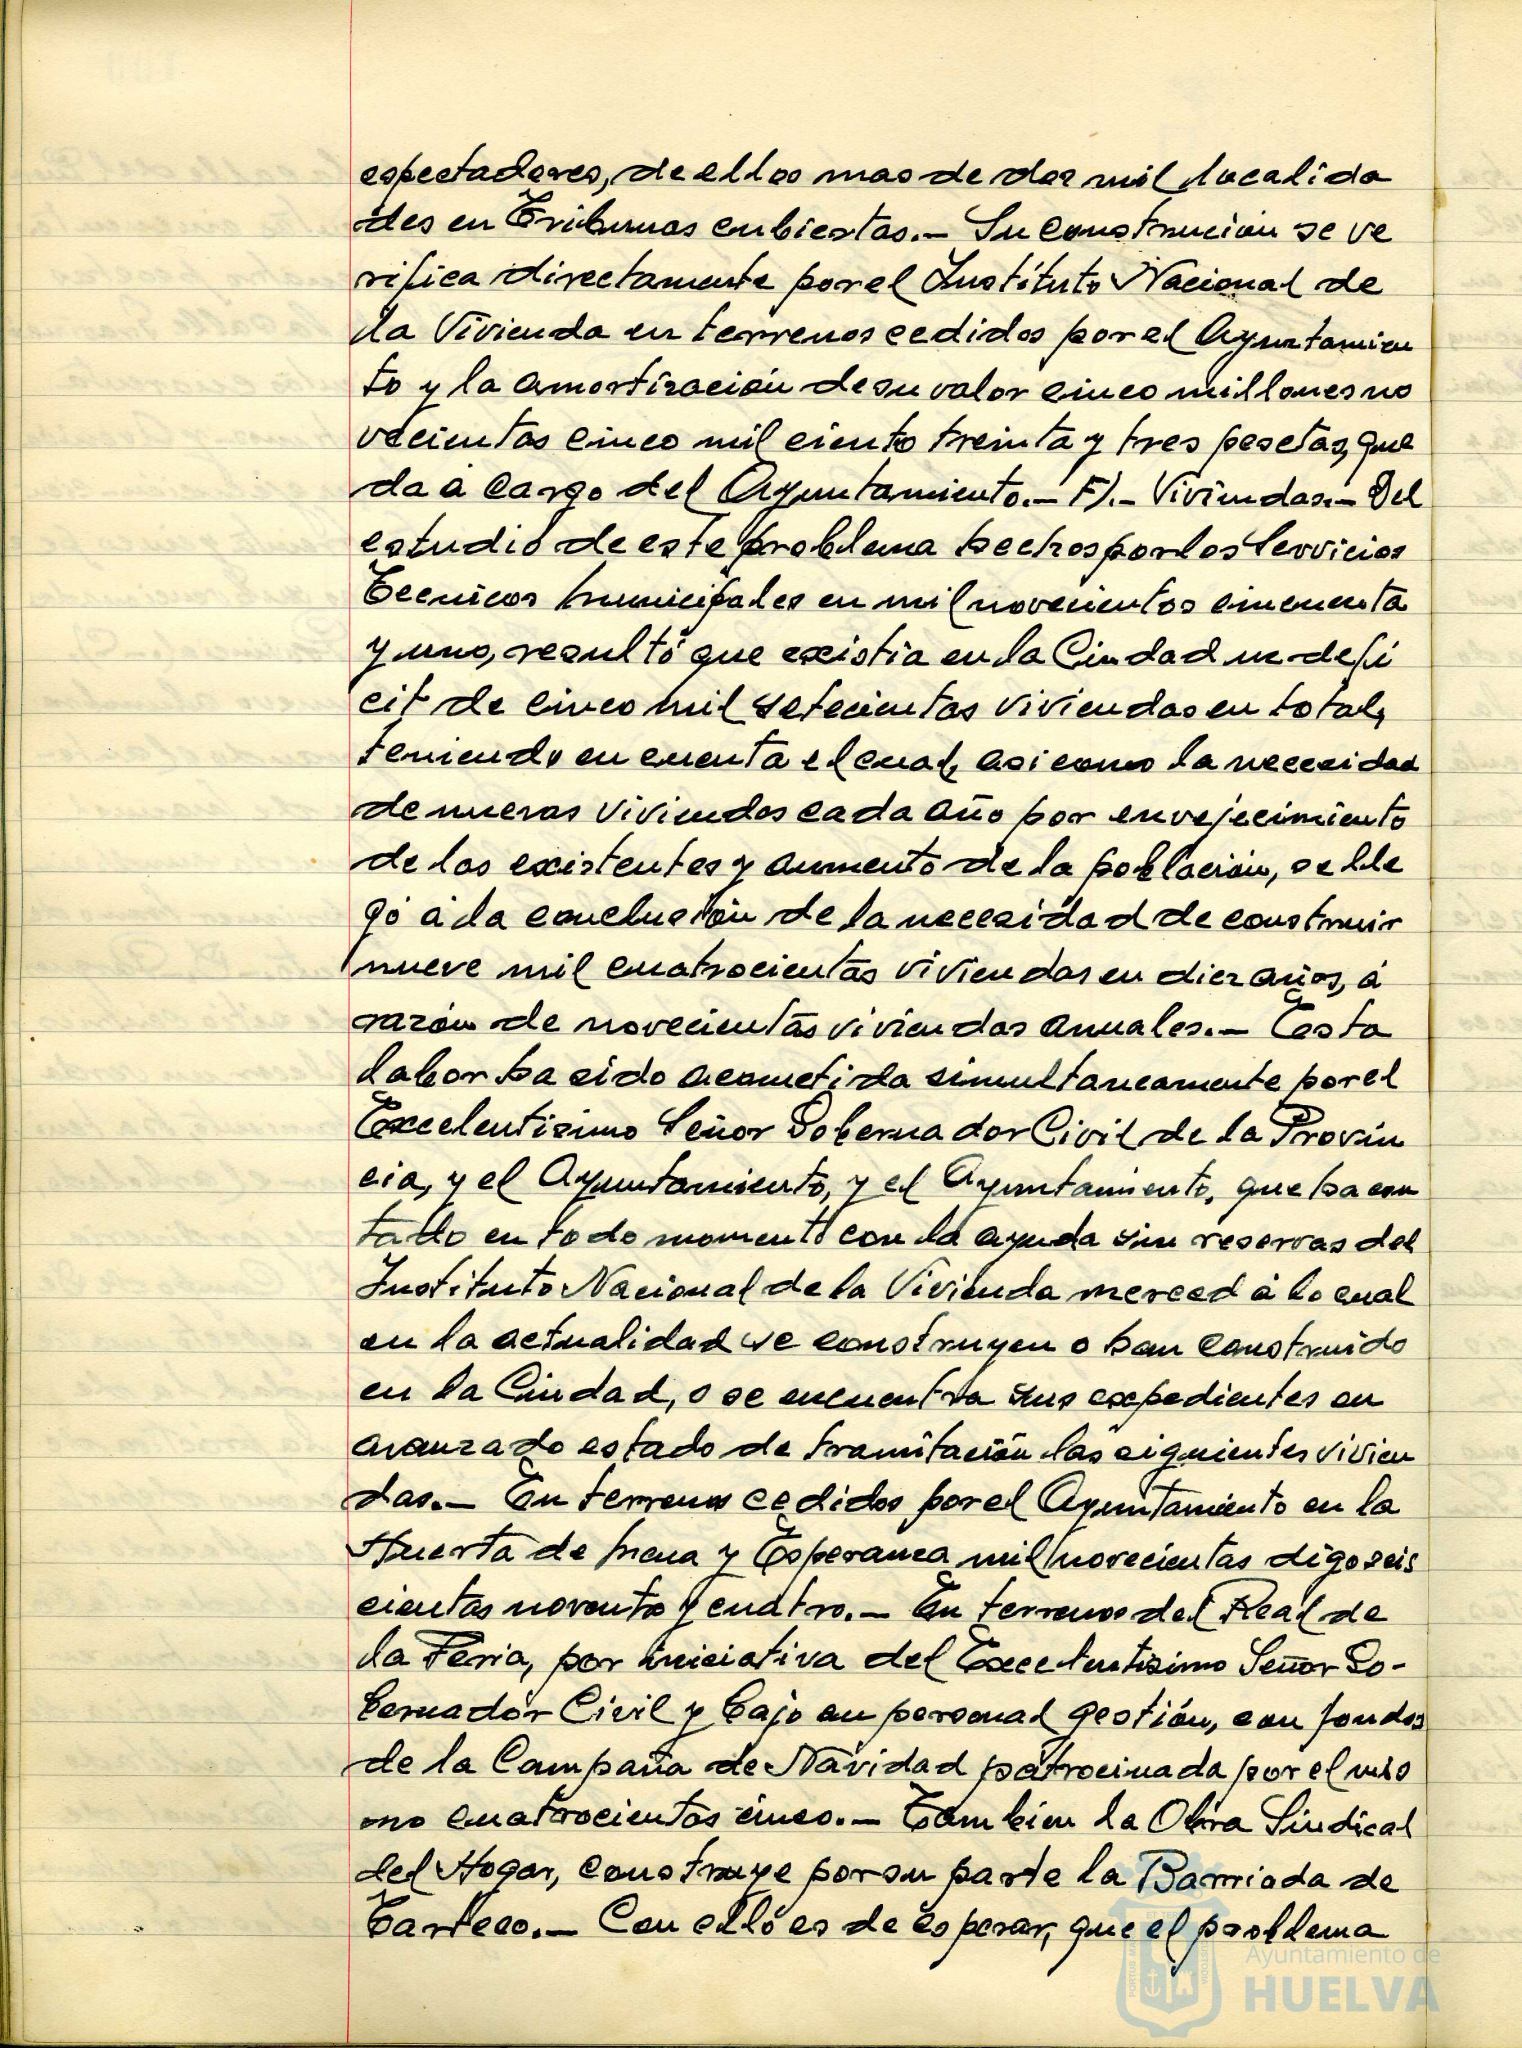 espectadores, de ellos mas de dos mil localida
des en Tribunas cubiertas.— Su construcción se ve
rifica directamente por el Instituto Nacional de
la Vivienda en terrenos cedidos por el Ayuntamien
to y la amortización de su valor cinco millones no
vecientas cinco mil ciento treinta y tres pesetas, que
da á cargo del Ayuntamiento.— F).— Viviendas.— Del
estudio de este problema hechos por los Servicios
Tecnicos Municipales en mil novecientos cincuenta
y uno, resultó que existia en la Ciudad un defi
cit de cinco mil setecientas viviendas en total,
teniendo en cuenta el cual, asi como la necesidad
de nuevas viviendas cada año por envejecimiento
de las existentes y aumento de la población, se lle
gó á la conclusión de la necesidad de construir
nueve mil cuatrocientas viviendas en diez años, á
razón de novecientas viviendas anuales.— Esta
labor ha sido acometida simultaneamente por el
Excelentisimo Señor Gobernador Civil de la Provin
cia, y el Ayuntamiento, y el Ayuntamiento, que ha con
tado en todo momento con la ayuda sin reservas del
Instituto Nacional de la Vivienda merced á lo cual
en la actualidad se construyen o han construido
en la Ciudad, o se encuentra sus expedientes en
avanzado estado de tramitación las siguientes vivien
das.— En terrenos cedidos por el Ayuntamiento en la
Huerta de Mena y Esperanza mil novecientas digo seis
cientas noventa y cuatro.— En terrenos del Real de
la Feria, por iniciativa del Excelentisimo Señor Go-
bernador Civil y bajo su personal gestión, con fondos
de la Campaña de Navidad patrocinada por el mis
mo cuatrocientas cinco.— Tambien la Obra Sindical
del Hogar, construye por su parte la Barriada de
Tarteso.— Con ello es de esperar, que el problema
Ayuntamiento de
HUELVA